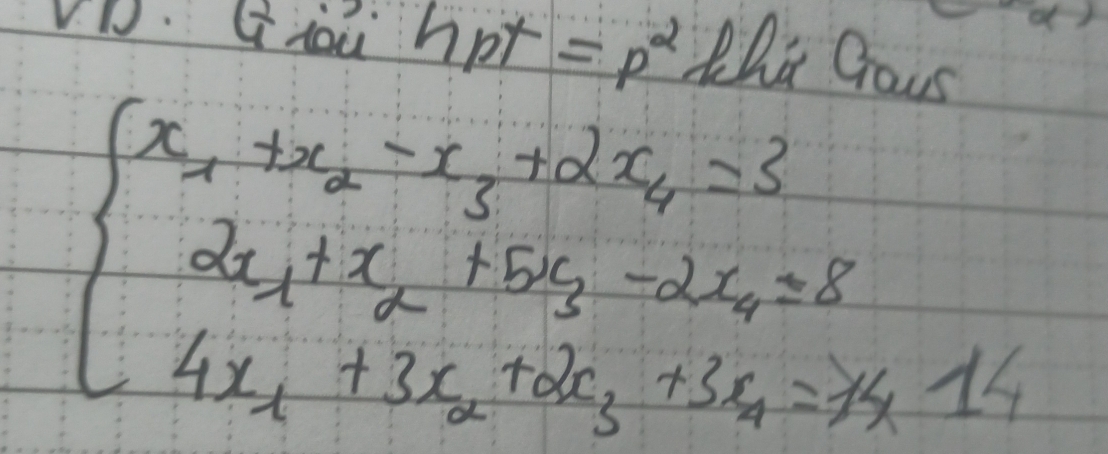 VD: Giải hpt = p² khử Gaus
x₁ + x₂ - x₃ + 2x₄ = 3
2x₁ + x₂ + 5x₃ - 2x₄ = 8
4x₁ + 3x₂ + 2x₃ + 3x₄ = 14